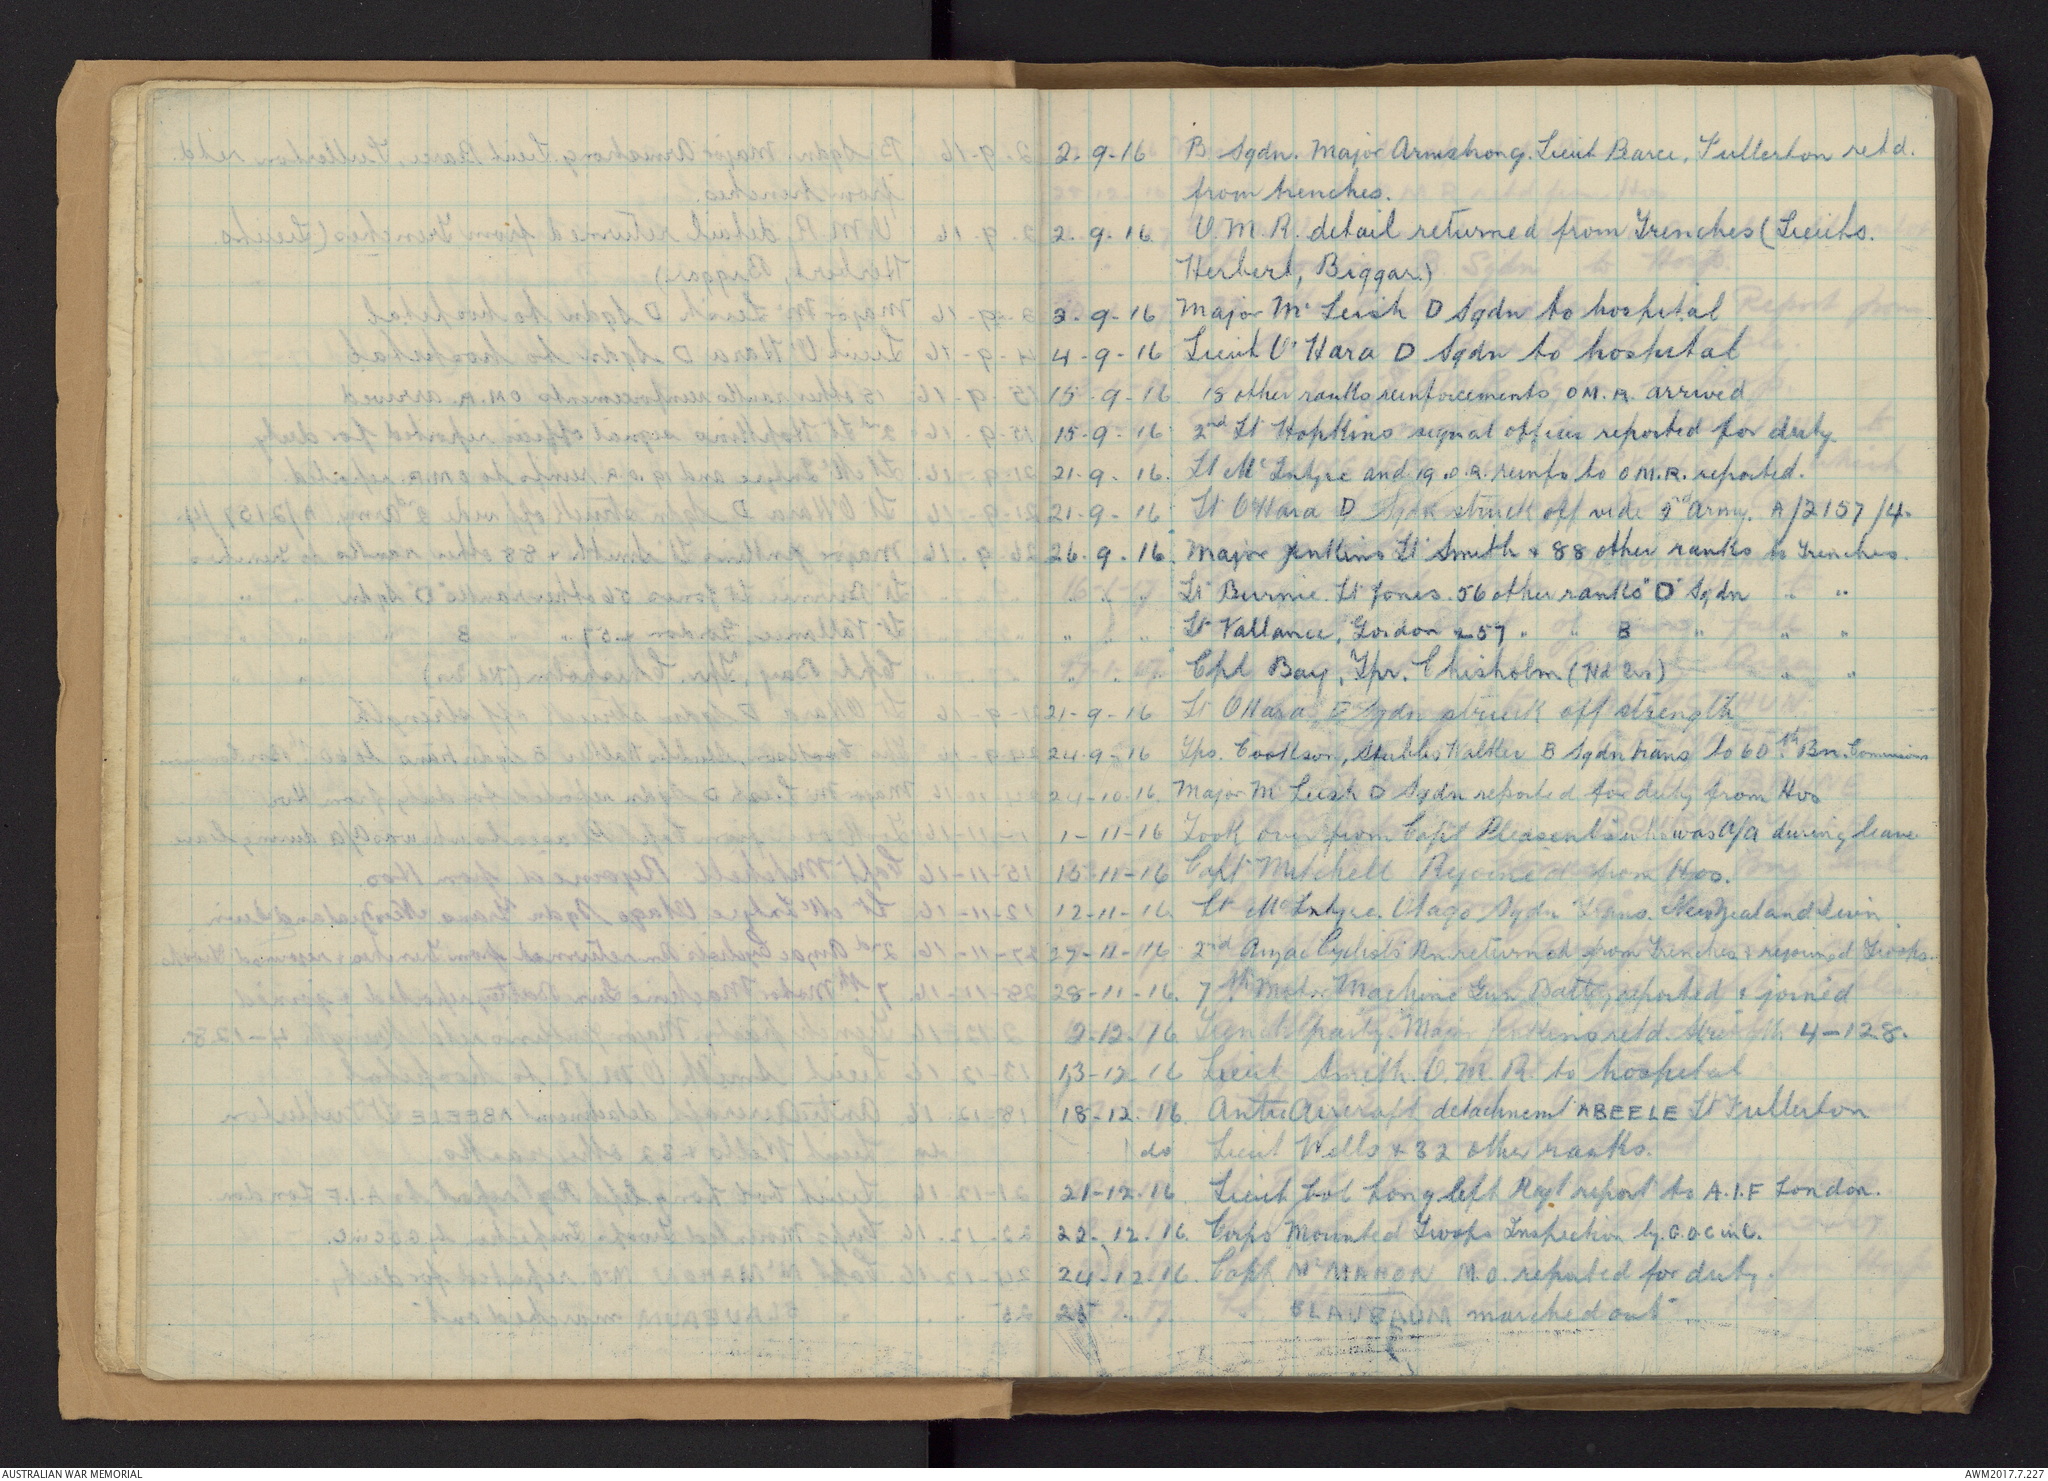 2-9-16 B Sqdn. Major Armstrong. Lieut Pearce, Fullerton retd.
from trenches.
2.9.16 O.M.R. detail returned from Trenches (Lieuts.
Herbert, Biggar)
3.9-16 Major Mc Leish D Sqdn to hospital
4-9-16 Lieut O'Hara D Sqdn to hospital
15-9-16 18 other ranks reinforcements O M.R. arrived
15-9-16 2nd Lt Hopkins signal officer reported for duty
21-9-16. Lt McIntyre and 19 O.R. reinfs to O M.R. reported.
21-9-16 Lt O'Hara D Sqdn struck off vide 2nd Army. A/2157/4.
26.9.16. Major Jenkins Lt Smith & 88 other ranks to Trenches.
" " " Lt Burnie. Lt Jones. 56 other ranks "D" Sqdn " "
" " " Lt Vallance, Gordon & 57 " " B " " "
" " " Cpl Bay, Tpr. Chisholm (Hd Qrs) " "
21-9-16 Lt O'Hara D Sqdn struck off strength
24-9-16 Tps. Cookson, Stubbs Walker B Sqdn trans to 60th Bn. Commissions
24-10-16. Major Mc Leish D Sqdn reported for duty from Hos
1-11-16 Took over from Capt Pleasents who was A/A during leave
15-11-16 Capt Mitchell Rejoined from Hos.
12-11-16. Lt McIntyre. Otago Sqdn Trans. New Zealand Divn
27-11-16 2nd Anzac Cyclists Bn returned from Trenches & rejoined Troops.
28-11-16. 7th Motor Machine Gun Battery reported & joined
2-12.16. Trench party. Major Jenkins retd. strength 4-128.
13-12 16 Lieut Smith. O.M.R. to hospital
18-12.16. Anti Aircraft detachment ABEELE Lt Fullerton
do Lieut Wells & 32 other ranks.
21-12.16 Lieut Col Long left Regt report to A.I.F London.
22.12.16. Corps Mounted Troops Inspection by G.O.C in C.
24-12-16. Capt McMAHON M.O. reported for duty.
25 " " BLAUBAUM marched out
AUSTRALIAN WAR MEMORIAL
AWM2017.7.227